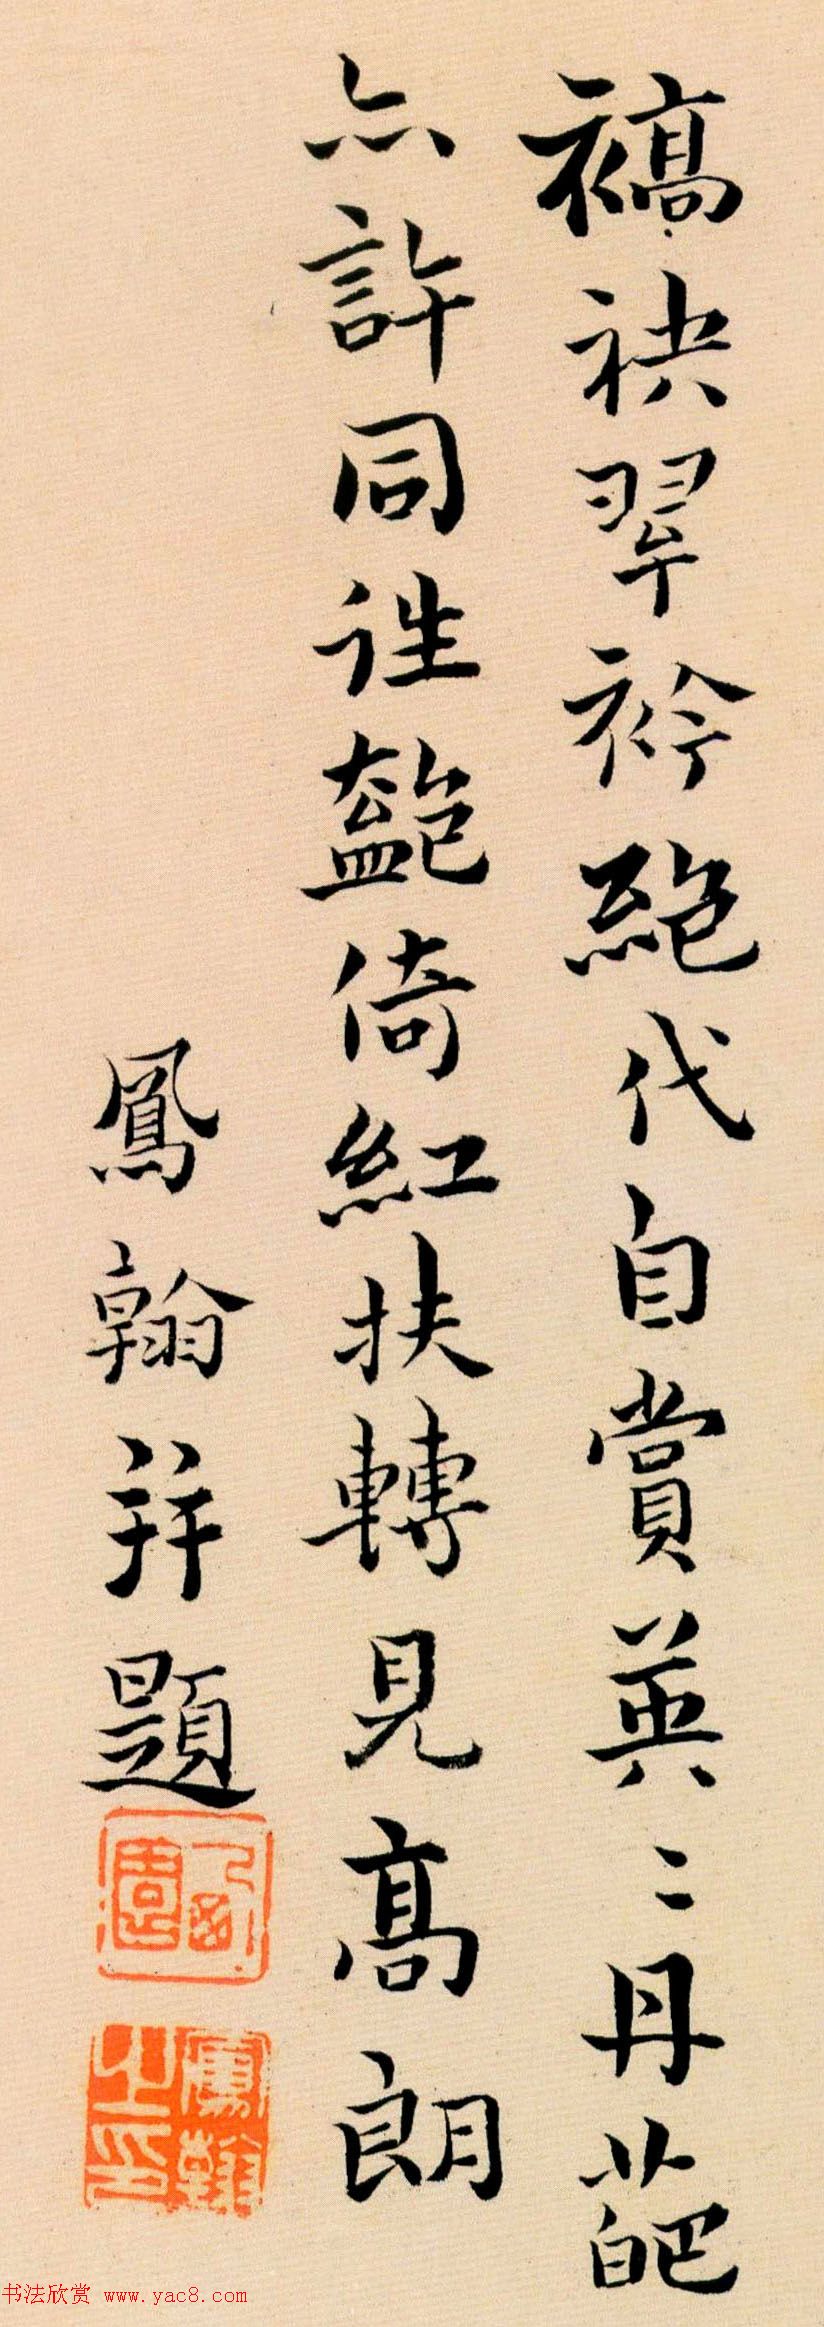 縞袂翠衿絕代自賞英〻丹葩
亦許同性艷倚紅扶轉見高朗
鳳翰并題
鳳翰之印
书法欣赏 www.yac8.com